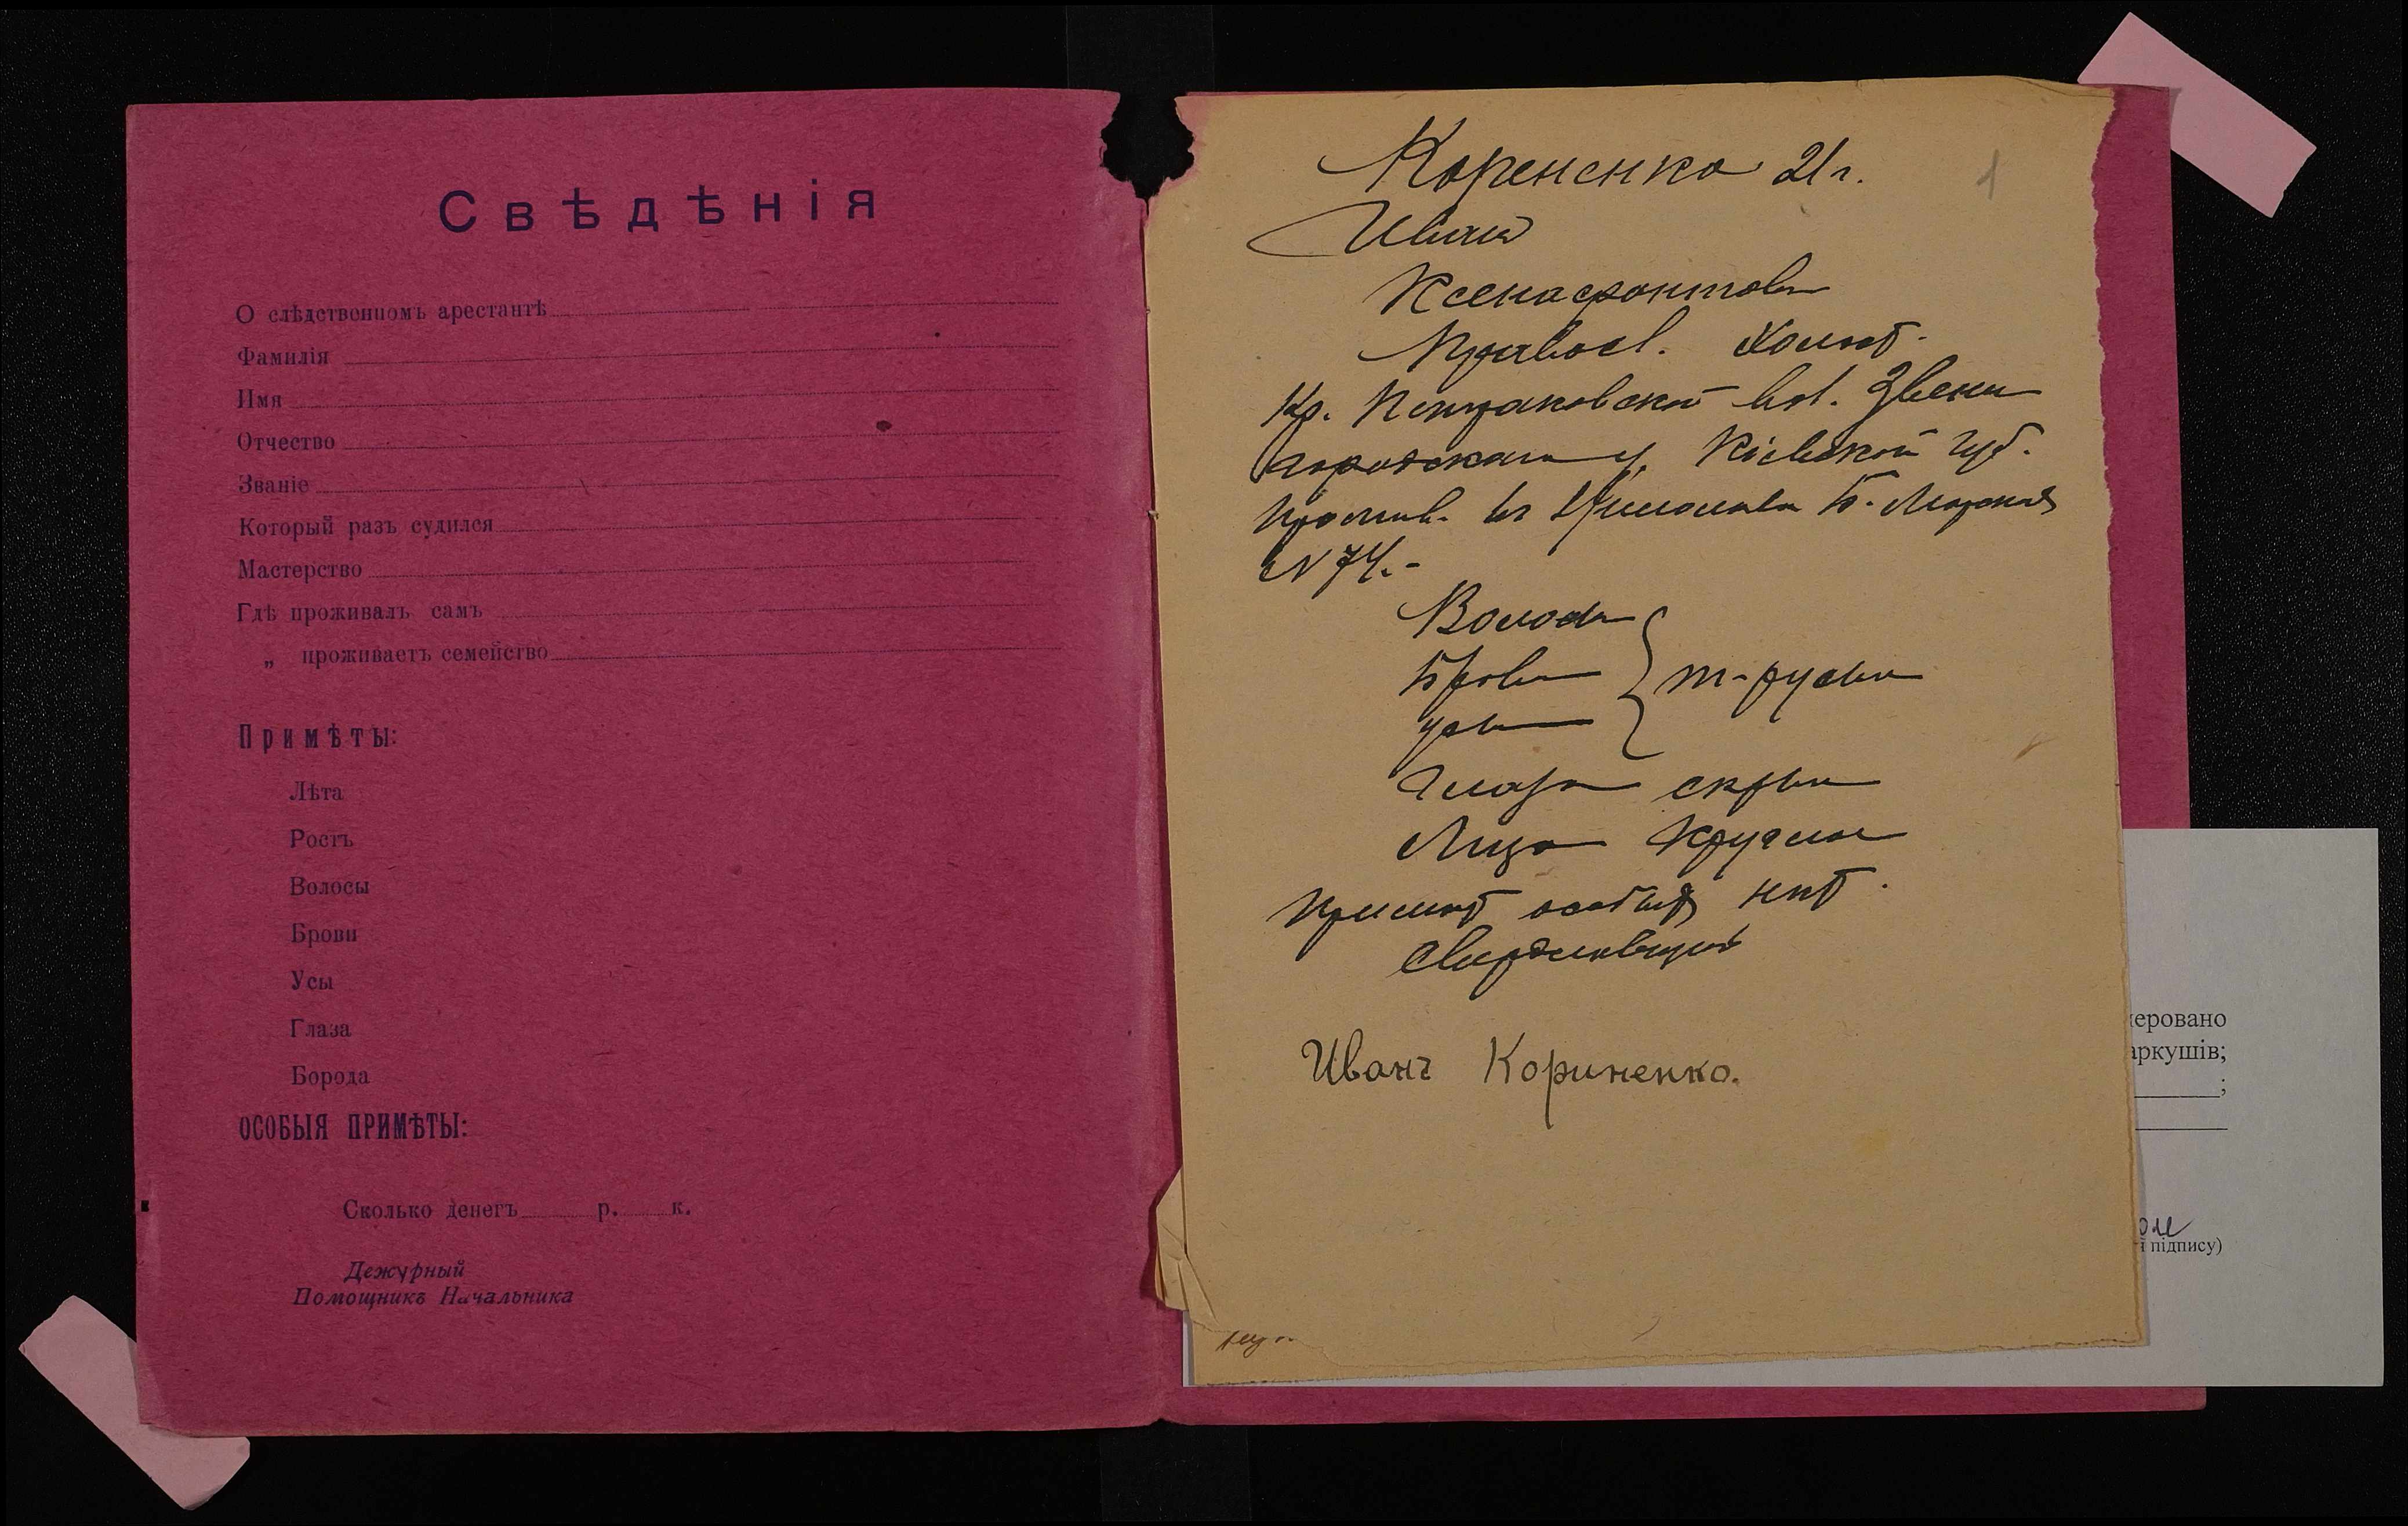 Свѣдѣнія
О слѣдственномъ арестантѣ
Фамилія
Имя
Отчество
Званіе
Который разъ судился
Мастерство
Гдѣ проживалъ самъ
„ проживаетъ семейство
Примѣты:
Лѣта
Ростъ
Волосы
Брови
Усы
Глаза
Борода
ОСОБЫЯ ПРИМѢТЫ:
Сколько денегъ р. к.
Дежурный
Помощникъ Начальника
1
Корененко 21 г.
Иванъ
Ксенофонтов
Правосл. Холост.
Кр. вол. Звени
городскаго у. Кіевской губ.
Прожив. въ Б. Морская
№ 74.-
Волосы
Брови } т-русы
усы
Глаза сѣрые
Лицо круглое
Примѣт особых нѣт.
Иванъ Кориненко.
еровано
аркушів;
;
підпису)